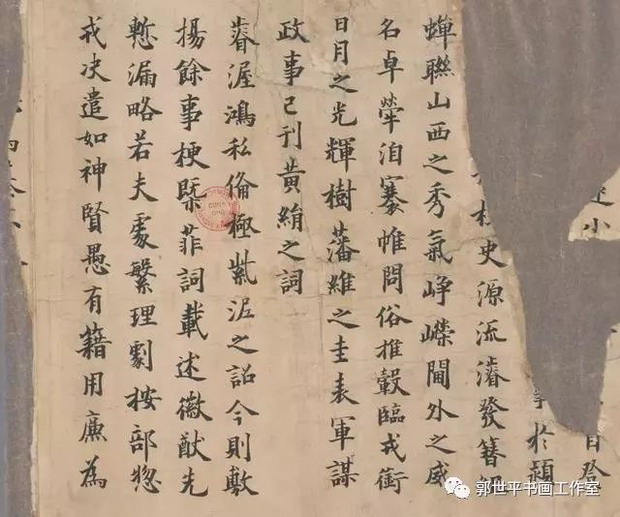 小
事於潁
柱史源流濬發簪
蟬聯山西之秀氣崢嶸閫外之威
名卓犖洎褰帷問俗推轂臨戎衘
日月之光輝樹藩維之圭表軍謀
政事已刊黃絹之詞
睿渥鴻私俻極紫泥之詔今則敷
揚餘事梗槩菲詞載述徽猷先
慙漏略若夫處繁理劇按部惣
戎决遣如神賢愚有籍用廉為
郭世平书画工作室